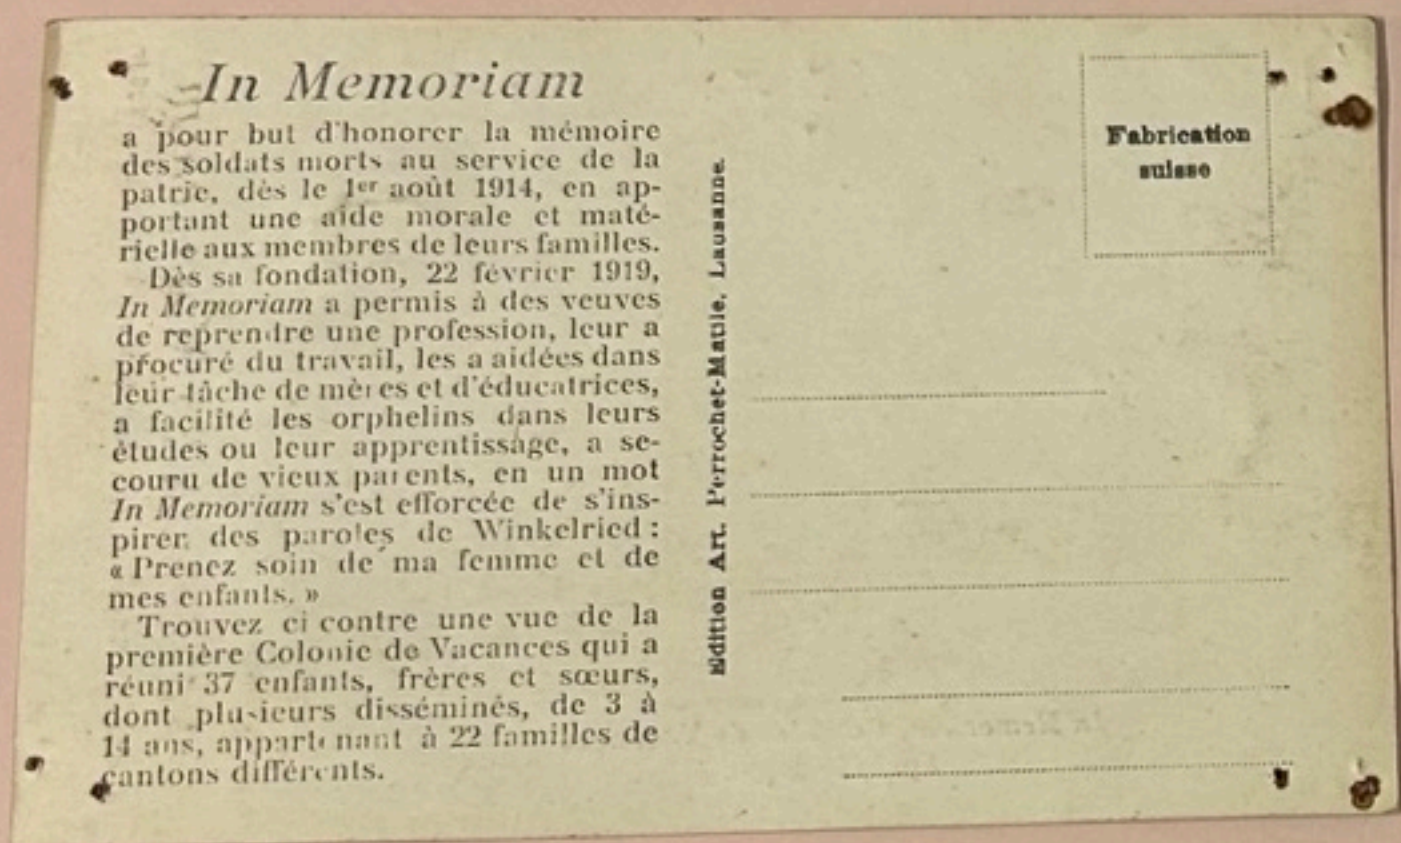 In Memoriam
a pour but d'honorer la mémoire
des soldats morts au service de la
patrie, dès le 1er août 1914, en ap-
portant une aide morale et maté-
rielle aux membres de leurs familles.
Dès sa fondation, 22 février 1919,
In Memoriam a permis à des veuves
de reprendre une profession, leur a
procuré du travail, les a aidées dans
leur tâche de mères et d'éducatrices,
a facilité les orphelins dans leurs
études ou leur apprentissage, a se-
couru de vieux parents, en un mot
In Memoriam s'est efforcée de s'ins-
pirer des paroles de Winkelried :
« Prenez soin de ma femme et de
mes enfants. »
Trouvez ci contre une vue de la
première Colonie de Vacances qui a
réuni 37 enfants, frères et sœurs,
dont plusieurs disséminés, de 3 à
14 ans, appartenant à 22 familles de
cantons différents.
Edition Art. Perrochet-Matile, Lausanne.
Fabrication
suisse